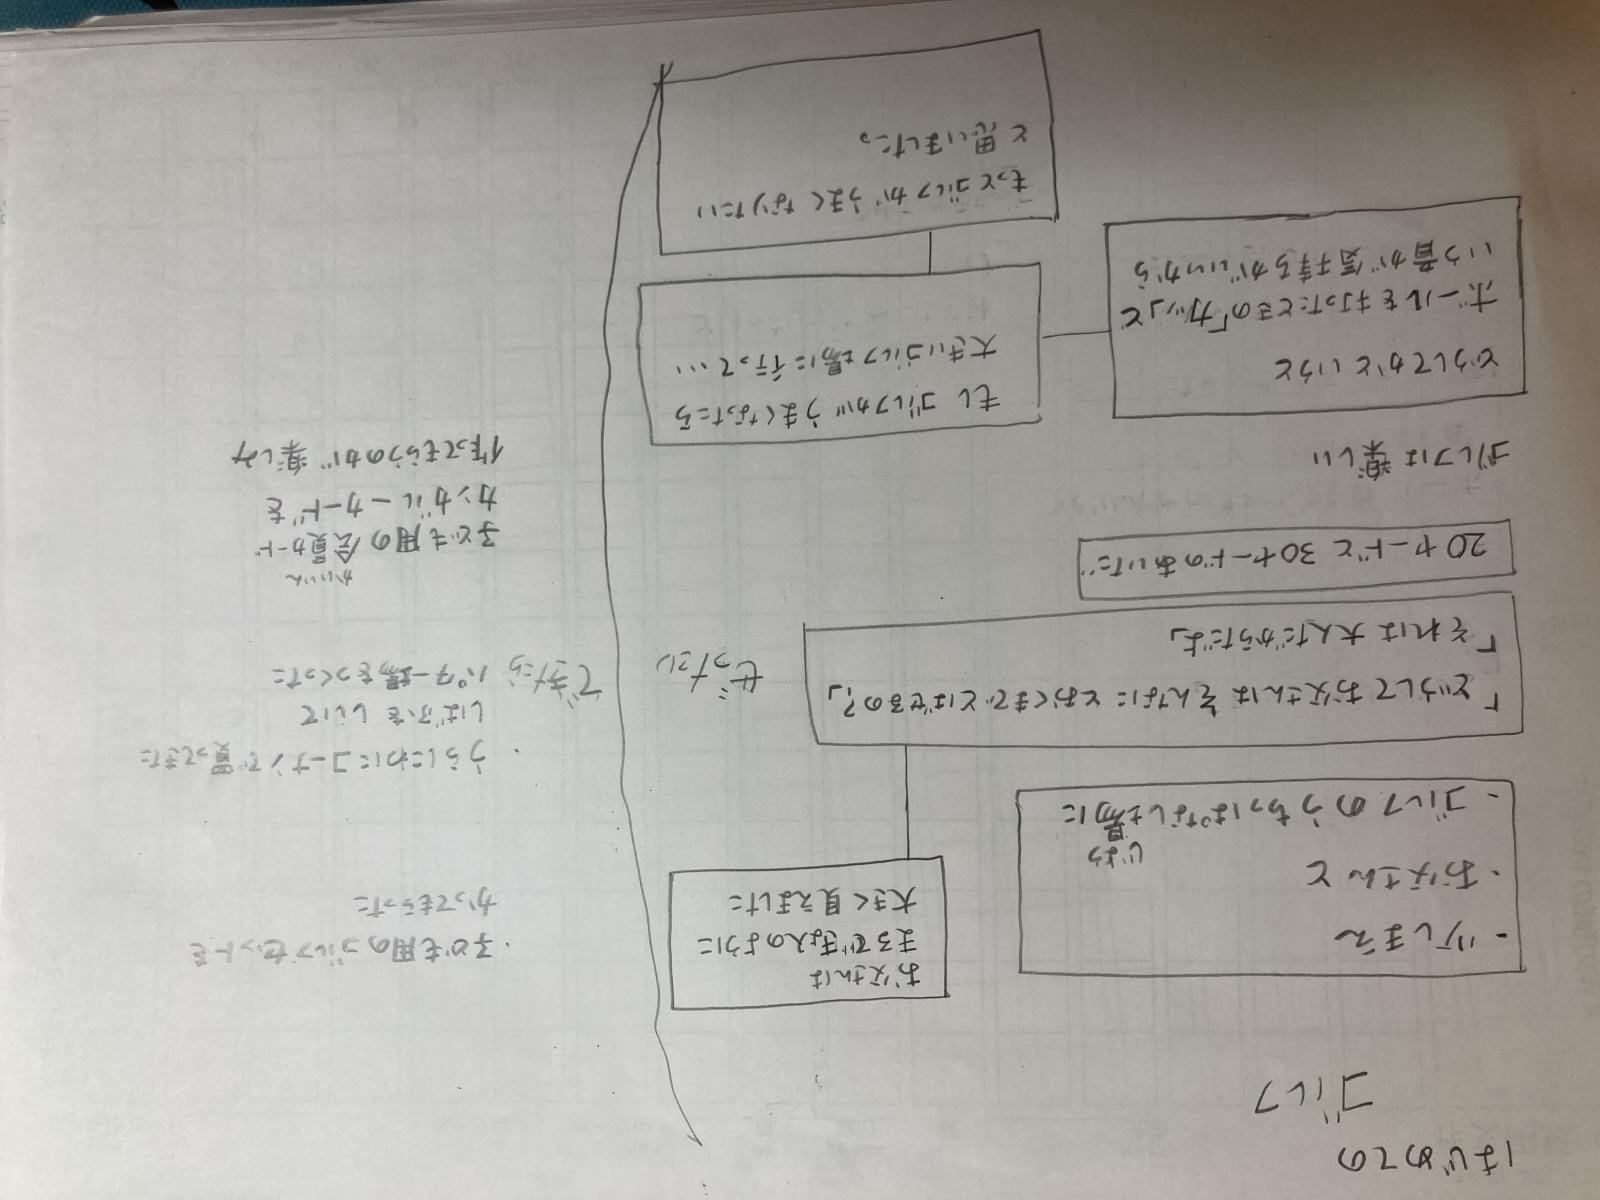 はじめての
ゴルフ
・少しまえ
・お父さんと
・ゴルフのうちっぱなし場に
じょう
お父さんは
まるできょ人のように
大きく見えました
「どうしてお父さんはそんなにとおくまでとばせるの?」
「それは大人だからだよ」
ぜったい
20ヤードと30ヤードのあいだ
ゴルフは楽しい
どうしてかというと
ボールを打ったときの「カッ」と
いう音が気持ちがいいから
もしゴルフがうまくなったら
大きいゴルフ場に行って…
もっとゴルフがうまくなりたい
と思いました。
・子ども用のゴルフセットを
かってもらった
・うらにわにコーナンで買ってきた
しばふをしいて
パター場をつくった
できたら
かいいん
子ども用の会員カード
カンガルーカードを
作ってもらうのが楽しみ